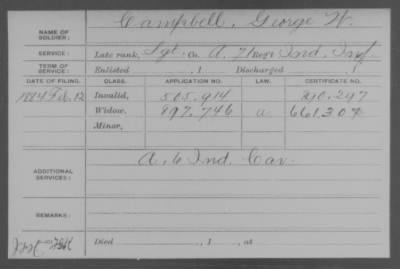 NAME OF SOLDIER: Campbell, George W.
SERVICE: Late rank, Sgt. Co. A, 71 Regt Ind. Inf.
TERM OF SERVICE: Enlisted , 1 Discharged , 1
DATE OF FILING. CLASS. APPLICATION NO. CERTIFICATE NO.
1884 Feb. 12 Invalid, 505.914 290.297
Widow, 897.746 a 661.304
Minor,
ADDITIONAL SERVICES: A. 6 Ind. Cav.
REMARKS:
Died , 1 , at